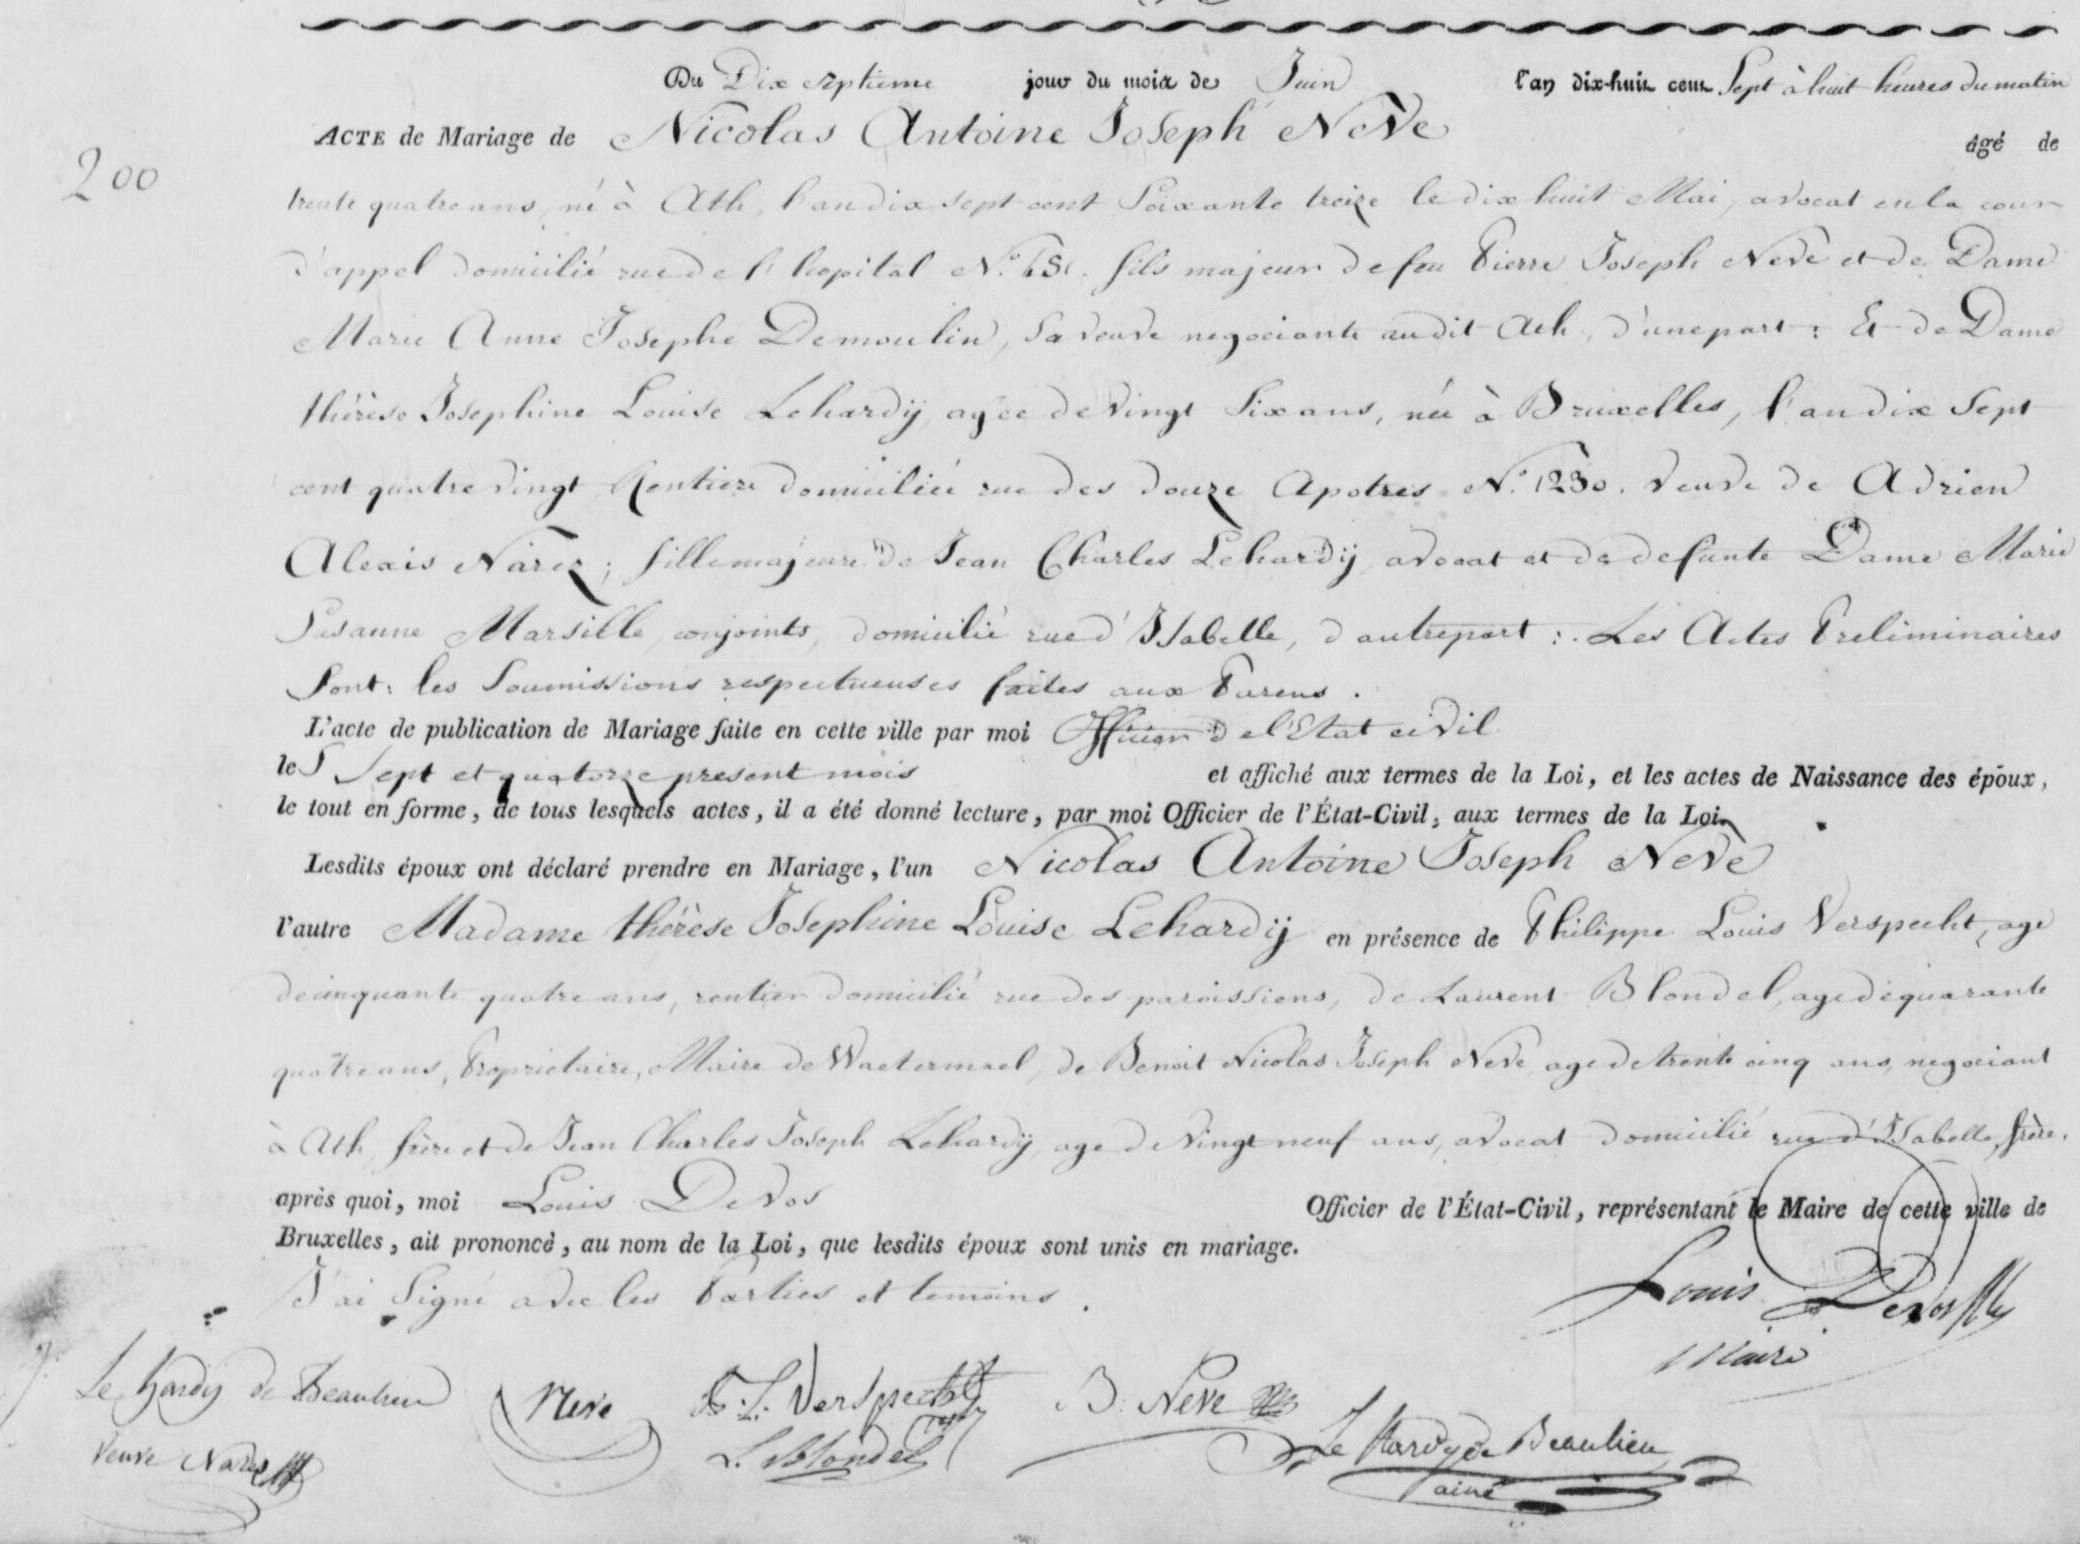 Du Dix septieme jour du mois de Juin l'an dix-huit cent Sept à huit heures du matin
200
ACTE de Mariage de Nicolas Antoine Joseph Neve âgé de
trente quatre ans, né à Ath, l'an dix sept cent Soixante treize le dix huit Mai, avocat en la cour
d'appel domicilié rue de l'hopital N.° fils majeur de feu Pierre Joseph Neve et de Dame
Marie Anne Josephe Demoulin, Sa veuve negociante audit Ath, d'une part : Et de Dame
thérèse Josephine Louise Lehardÿ, agée de Vingt Six ans, née à Bruxelles, l'an dix Sept
cent quatre vingt Rentiere domiciliée rue des douze Apotres N.° 1230. Veuve de Adrien
Alexis Narez ; fille majeure de Jean Charles Lehardÿ, avocat et de defunte Dame Marie
Susanne Marsille, conjoints, domicilié rue d'Isabelle, d'autre part : Les Actes Preliminaires
Sont : les Soumissions respectueuses faites aux Parens .
L'acte de publication de Mariage faite en cette ville par moi Officier de l'Etat civil
les Sept et quatorze present mois et affiché aux termes de la Loi, et les actes de Naissance des époux,
le tout en forme, de tous lesquels actes, il a été donné lecture, par moi Officier de l'État-Civil, aux termes de la Loi.
Lesdits époux ont déclaré prendre en Mariage, l'un Nicolas Antoine Joseph Neve
l'autre Madame thérèse Josephine Louise Lehardÿ en présence de Philippe Louis Verspecht, age
de cinquante quatre ans, rentier domicilié rue des paroissiens, de Laurent Blondel, age de quarante
quatre ans, Propriétaire, Maire de Waetermael, de Benoit Nicolas Joseph Neve, age de trente cinq ans, negociant
à Ath, frère et de Jean Charles Joseph Lehardÿ, age de Vingt neuf ans, avocat domicilié rue d'Isabelle, frère.
après quoi, moi Louis Devos Officier de l'État-Civil, représentant le Maire de cette ville de
Bruxelles, ait prononcé, au nom de la Loi, que lesdits époux sont unis en mariage.
J'ai Signé avec les Parties et temoins .
Louis Devos
Maire
Le hardÿ de Beaulieu Neve P. L. Verspecht B. Neve
Veuve Narez L. Blondel Le Hardy de Beaulieu
ainé